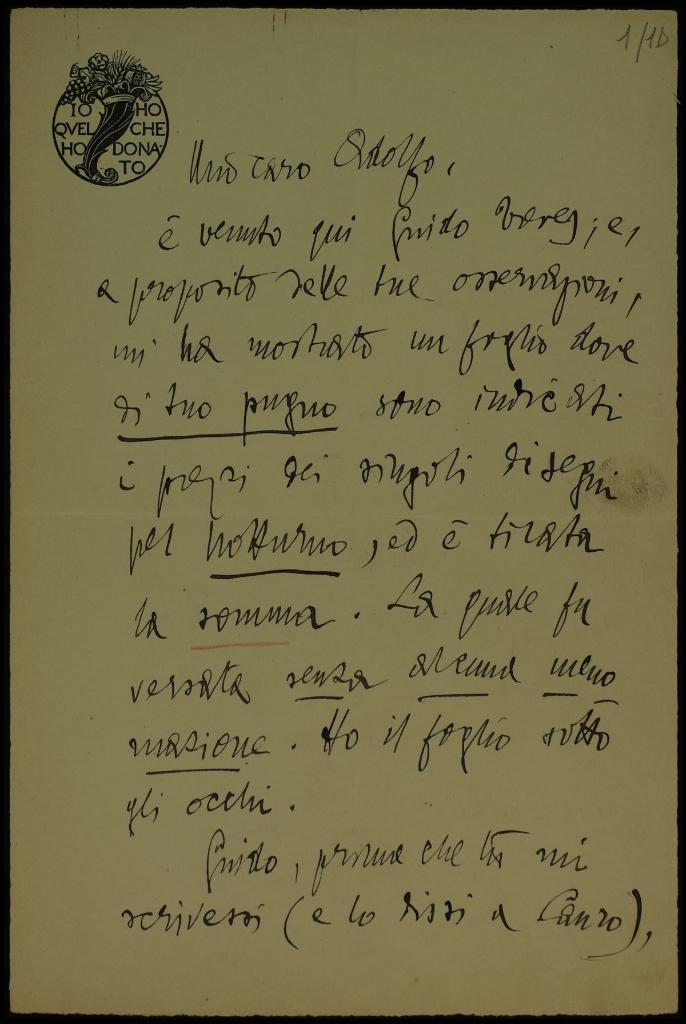 1/1D
IO HO
QVEL CHE
HO DONA-
TO
Mio caro Adolfo,
è venuto qui Guido ; e,
a proposito delle tue osservazioni,
mi ha mostrato un foglio dove
di tuo pugno sono indicati
i prezzi dei singoli disegni
pel Notturno, ed è tirata
la somma. La quale fu
versata senza alcuna meno
mazione. Ho il foglio sotto
gli occhi.
Guido, prima che tu mi
scrivessi (e lo dissi a ),